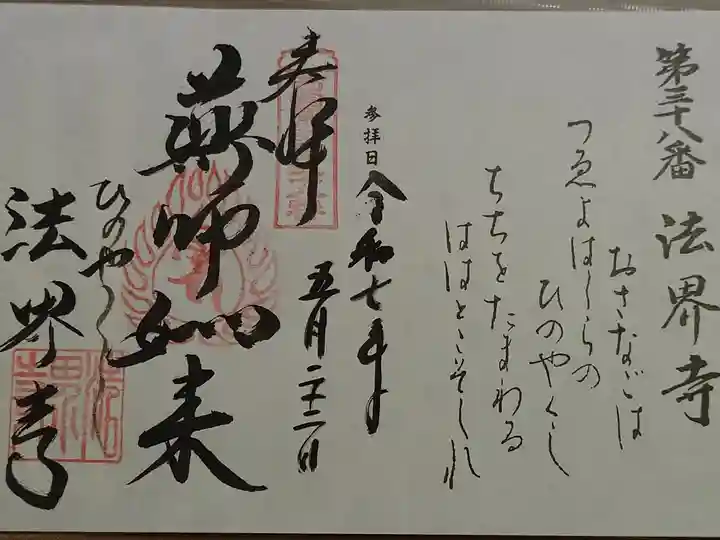 第三十八番 法界寺
おさなごは
ひのやくし
つゑよはしらの
ちちをたまわる
ははとこそしれ
参拝日 令和七年
五月二十三日
奉拝
薬師如来
ひのやくし
法界寺